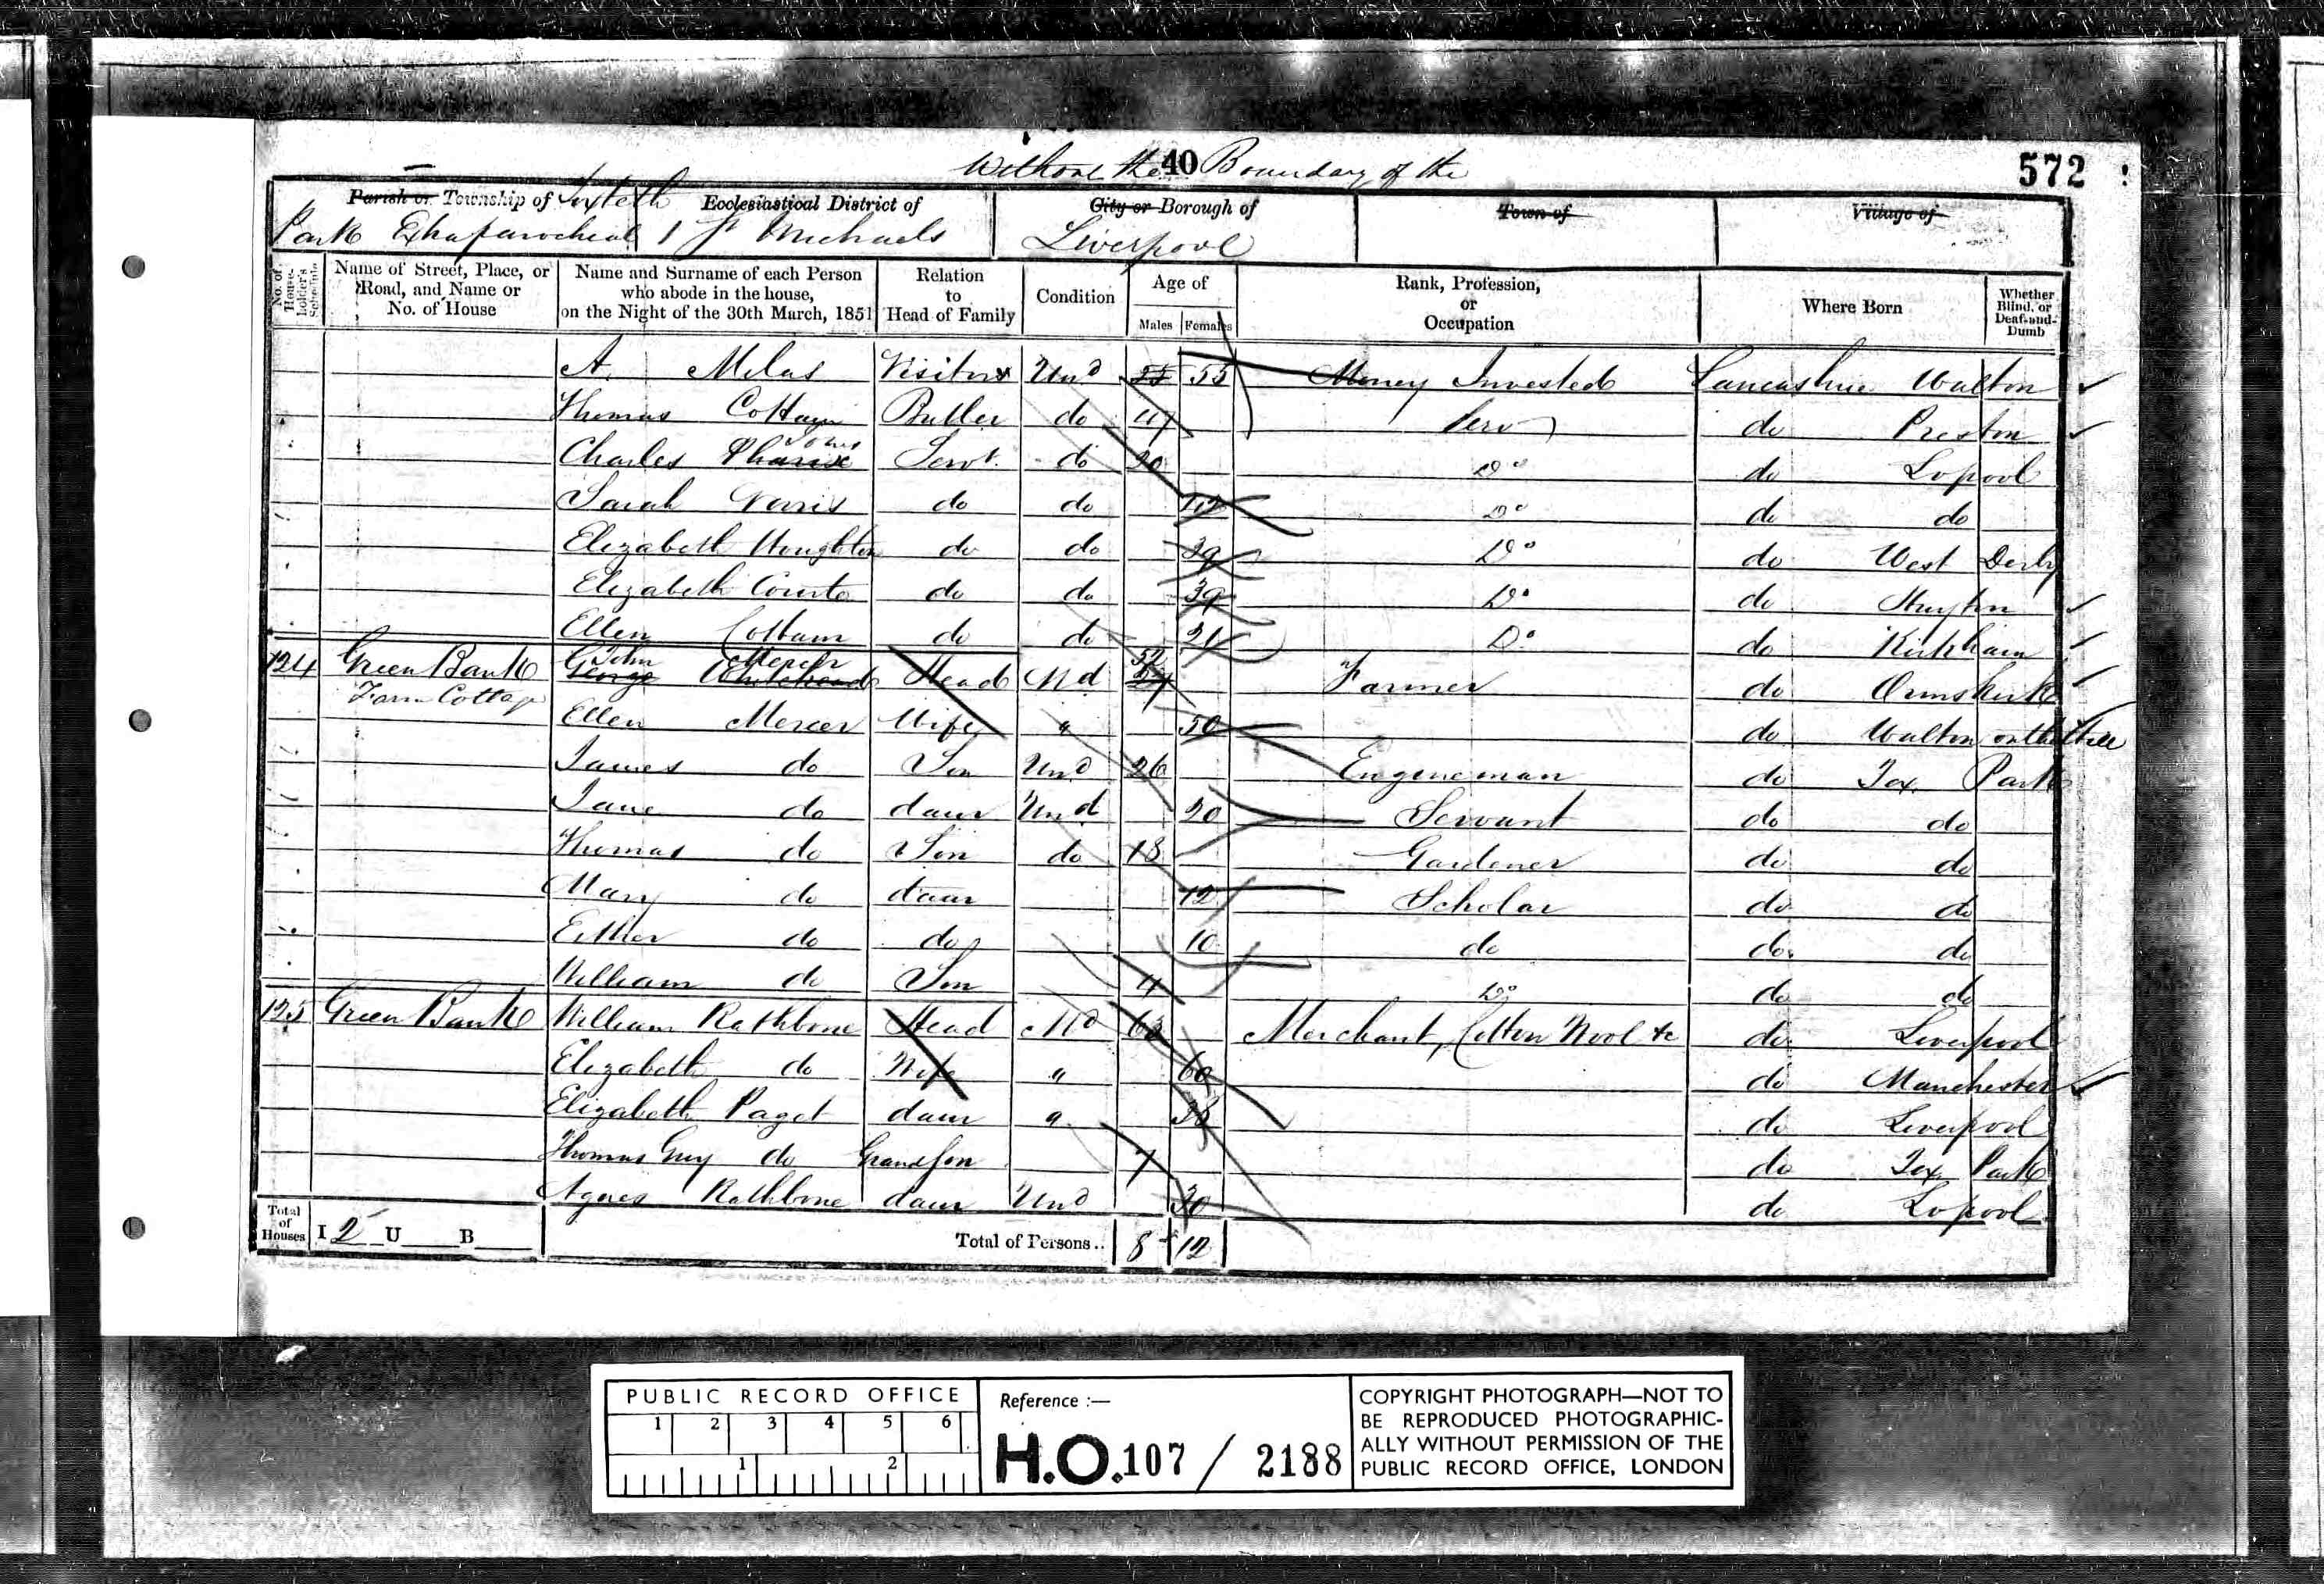 Without the 40 Boundary of the
572
Parish or Township of Toxteth Ecclesiastical District of City or Borough of Town of Village of
Park Extraparochial St Michaels Liverpool
No. of Householder's Schedule Name of Street, Place, or Road, and Name or No. of House Name and Surname of each Person who abode in the house, on the Night of the 30th March, 1851 Relation to Head of Family Condition Age of Males Females Rank, Profession, or Occupation Where Born Whether Blind, or Deaf-and-Dumb
A. Visitor Und 55 Money Invested Lancashire Walton
Thomas Butler do Serv do Preston
Charles Jones Servt. do 20 Do do Lvpool
Sarah Norris do do Do do do
Elizabeth Houghton do do 39 Do do West Derby
Elizabeth do do 39 Do do Huyton
Ellen Cottam do do 21 Do do Kirkham
124 Green Bank John Mercer George Whitehead Head Md 52 Farmer do Ormskirk
Farm Cottage
Ellen Mercer Wife " 50 do Walton on the Hill
James do Son Und 26 Engineman do Tox Park
Jane do daur Und 20 Servant do do
Thomas do Son do 18 Gardener do do
Mary do daur 12 Scholar do do
Esther do do 10 do do do
William do Son 4 Do do do
125 Green Bank William Rathbone Head Md 63 Merchant, Cotton Wool &c do Liverpool
Elizabeth do Wife " 60 do Manchester
Elizabeth Paget daur " 38 do Liverpool
Thomas Guy do Grandson 7 do Tox Park
Agnes Rathbone daur Und 30 do Lvpool
Total of Houses I 2 U B Total of Persons.. 8 12
PUBLIC RECORD OFFICE
1 2 3 4 5 6
1 2
Reference :—
H.O. 107 / 2188
COPYRIGHT PHOTOGRAPH—NOT TO
BE REPRODUCED PHOTOGRAPHIC-
ALLY WITHOUT PERMISSION OF THE
PUBLIC RECORD OFFICE, LONDON